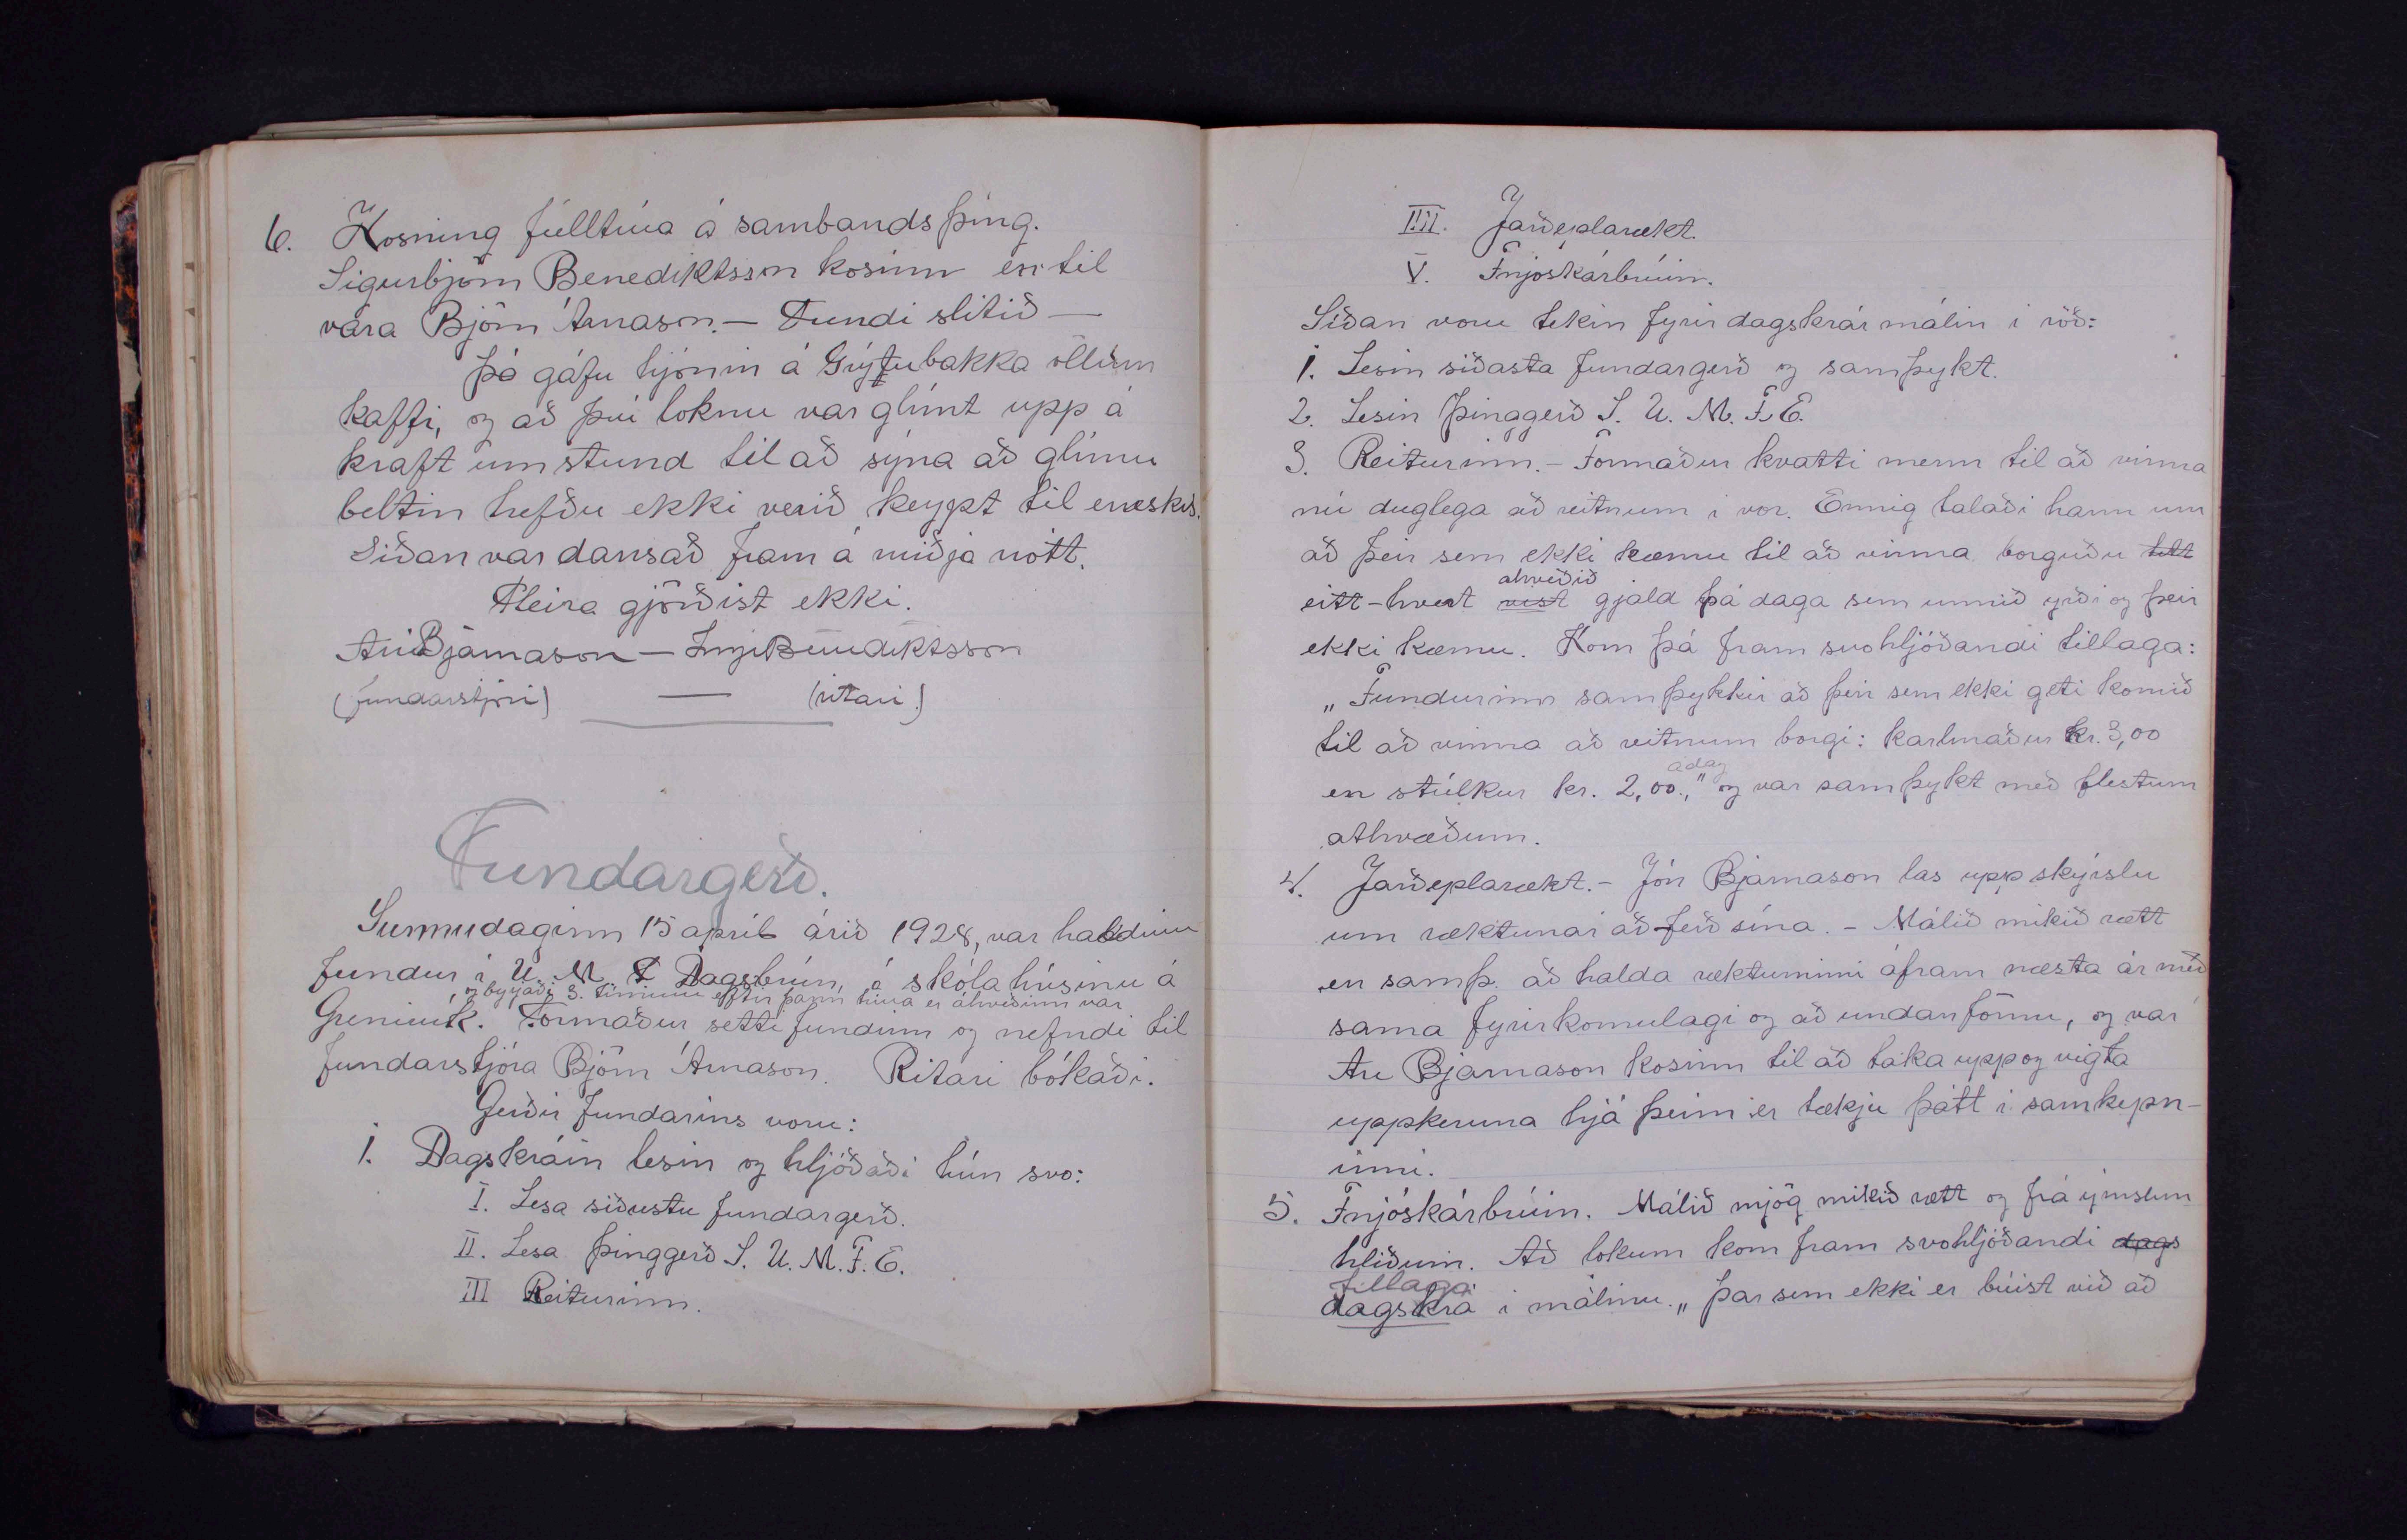 6. Kosning fulltrúa á sambandsþing.
Sigurbjörn Benediktsson kosinn en til
vara Björn Árnason. — Fundi slitið —
Þá gáfu hjónin á Grýtubakka öllum
kaffi, og að því loknu var glímt upp á
kraft um stund til að sýna að glímu
beltin hefðu ekki verið keypt til einskis.
Síðan var dansað fram á miðja nótt.
Fleira gjörðist ekki.
Ari Bjarnason — Ingi Benediktsson
(fundarstjóri) — (ritari.)
Fundargerð.
Sunnudaginn 15 apríl árið 1928, var haldinn
fundur í U. M. F. Dagsbrún, á skólahúsinu á
og byrjaði 3. tímum eftir þann tíma er ákveðinn var
Grenivík. Formaður setti fundinn og nefndi til
fundarstjóra Björn Árnason. Ritari bókaði.
Gerðir fundarins voru:
1. Dagskráin lesin og hljóðaði hún svo:
I. Lesa síðustu fundargerð.
II. Lesa þinggerð S. U. M. F. E.
III Reiturinn.
IIII. Jarðeplarækt.
V. Fnjóskárbrúin.
Síðan voru tekin fyrir dagskrármálin í röð:
1. Lesin síðasta fundargerð og samþykt.
2. Lesin þinggerð S. U. M. F. E.
3. Reiturinn. – Formaður kvatti menn til að vinna
nú duglega að reitnum í vor. Ennig talaði hann um
að þeir sem ekki kæmu til að vinna borguðu
ahveðið
eitt-hvert vist gjald þá daga sem unnið yrði og þeir
ekki kæmu. Kom þá fram svohljóðandi tillaga:
„Fundurinn samþykkir að þeir sem ekki geti komið
til að vinna að reitnum borgi: karlmaður kr. 3,00
á dag
en stúlkur kr. 2,00.," og var samþykt með flestum
athvæðum.
4. Jarðeplarækt. – Jón Bjarnason las upp skýrslu
um ræktunar að-ferð sína. – Málið mikið rætt
en samþ. að halda ræktuninni áfram næsta ár með
sama fyrirkomulagi og að undanförnu, og var
Ari Bjarnason kosinn til að taka upp og vigta
uppskeruna hjá þeim er tækju þátt í samkepn-
inni.
5. Fnjóskárbrúin. Málið mjög mikið rætt og frá ýmslum
hliðum. Að lokum kom fram svohljóðandi dags
tillaga
dagskrá í málinu. „Þar sem ekki er búist við að